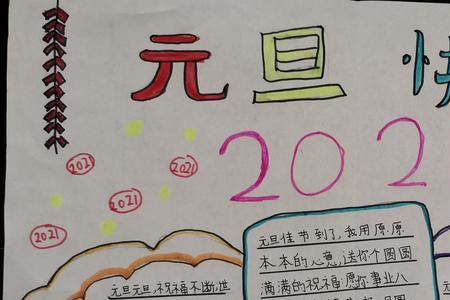 元旦快
202
2021
2021
2021
2021
元旦佳节到了,我用原原
本本的心意,送你个圆圆
满满的祝福:愿你事业八
元旦元旦,祝福不断,世